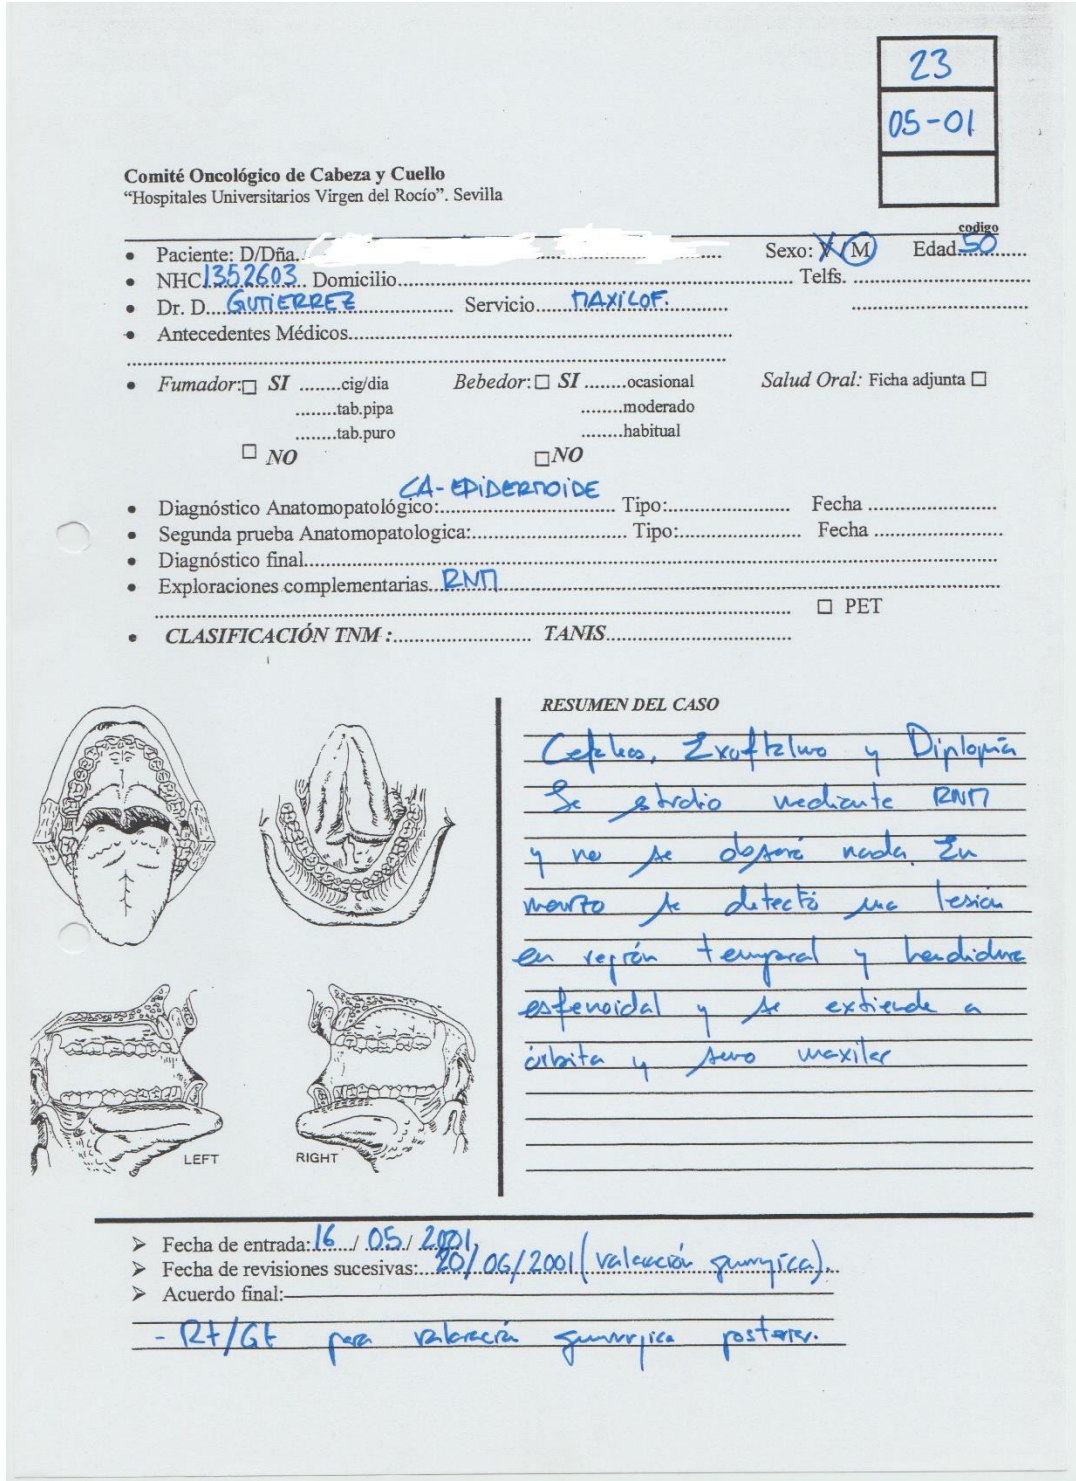 23
05-01
Comité Oncológico de Cabeza y Cuello
“Hospitales Universitarios Virgen del Rocío”. Sevilla
codigo
• Paciente: D/Dña. Sexo: V/M Edad 50
• NHC 1352603 Domicilio Telfs.
• Dr. D. GUTIERREZ Servicio MAXILOF.
• Antecedentes Médicos
• Fumador: □ SI ........cig/dia Bebedor: □ SI ........ocasional Salud Oral: Ficha adjunta □
........tab.pipa ........moderado
........tab.puro ........habitual
□ NO □ NO
CA-EPIDERMOIDE
• Diagnóstico Anatomopatológico: Tipo: Fecha
• Segunda prueba Anatomopatologica: Tipo: Fecha
• Diagnóstico final
• Exploraciones complementarias RNM
□ PET
• CLASIFICACIÓN TNM : TANIS
RESUMEN DEL CASO
Exoftalmo y Diplopía
Se estudio mediante RNM
y no se observó nada. En
marzo se detectó una lesión
en región temporal y hendidura
esfenoidal y se extiende a
órbita y seno maxilar
LEFT RIGHT
➢ Fecha de entrada: 16 / 05 / 2001
➢ Fecha de revisiones sucesivas: 20/06/2001 (valoración quirúrgica).
➢ Acuerdo final:
- Rt/Qt para valoración quirúrgica posterior.